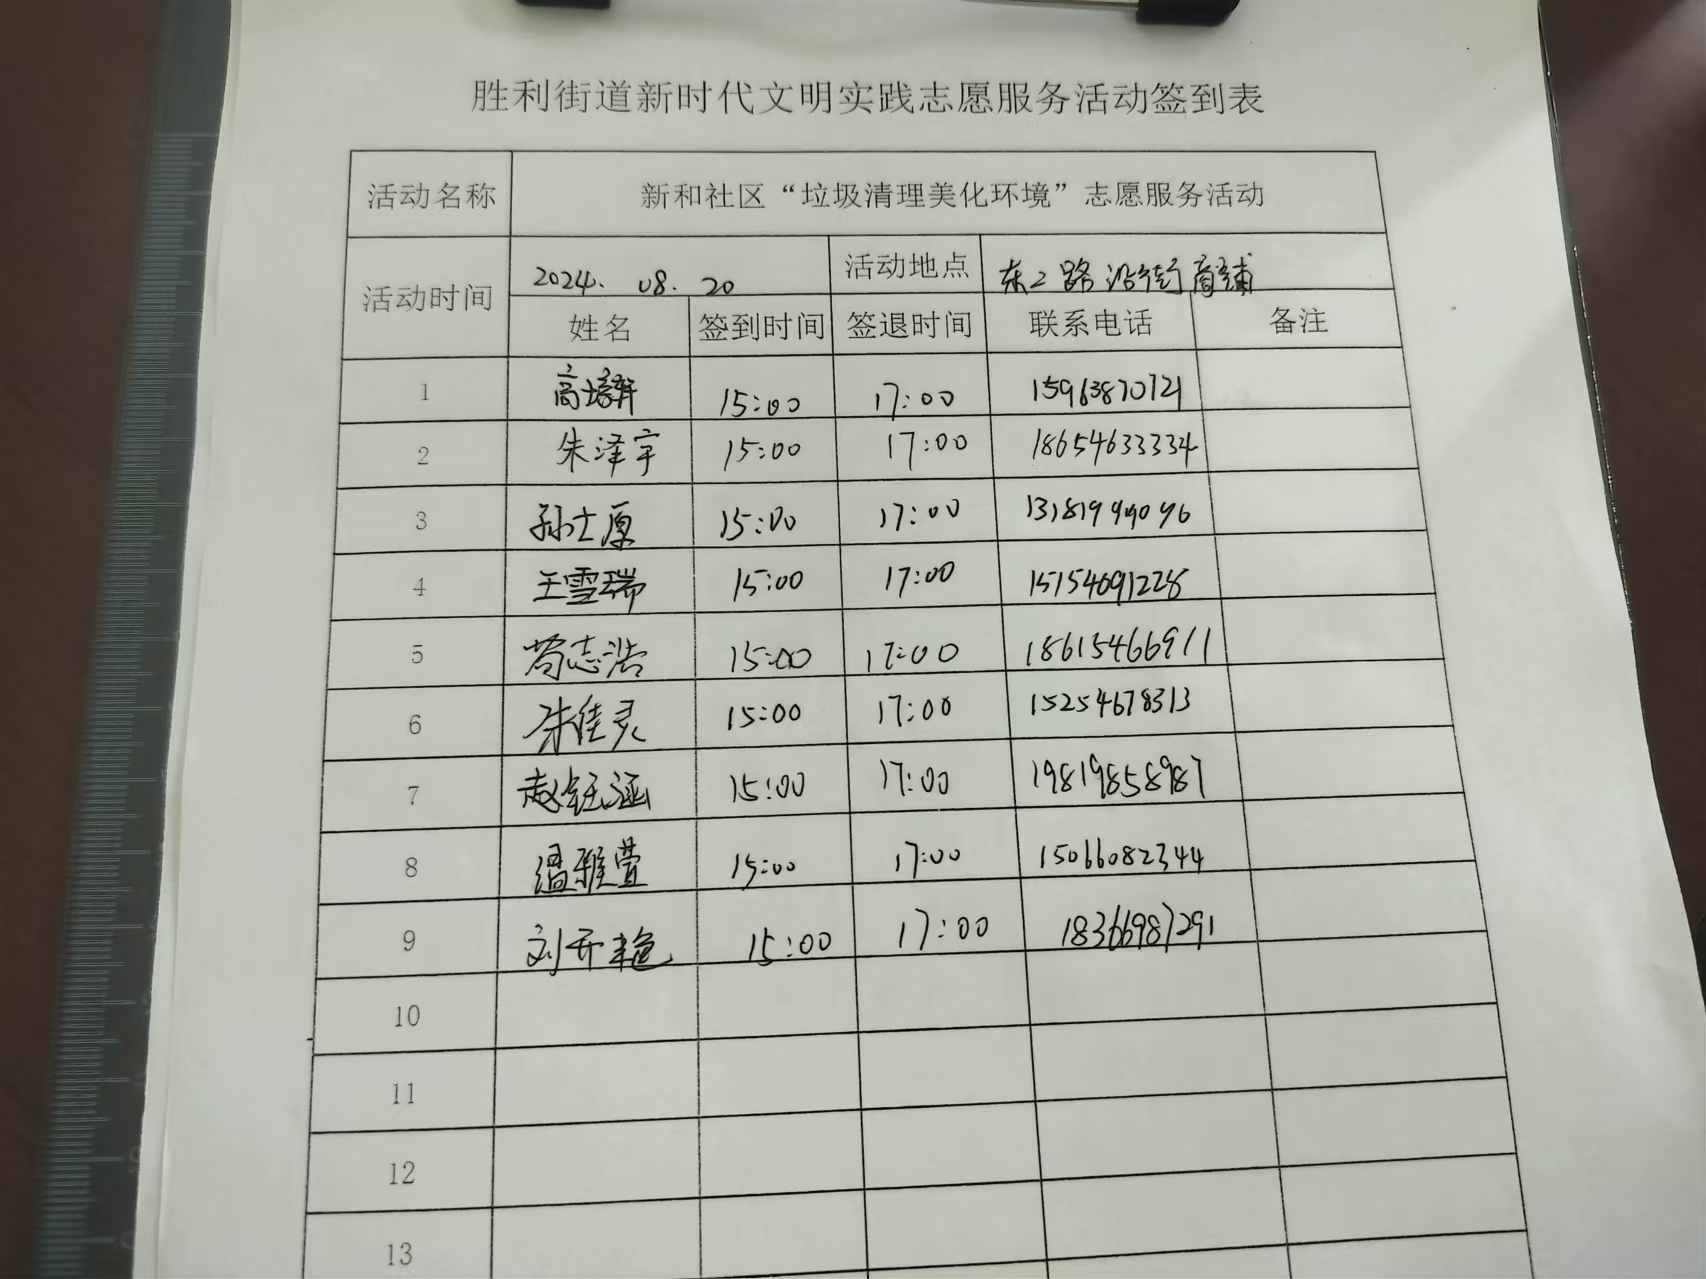 胜利街道新时代文明实践志愿服务活动签到表
活动名称 新和社区“垃圾清理美化环境”志愿服务活动
活动时间 2024. 08. 20 活动地点 东二路沿街商铺
姓名 签到时间 签退时间 联系电话 备注
1 高培轩 15:00 17:00 15963870721
2 朱泽宇 15:00 17:00 18654633334
3 孙士原 15:00 17:00 13181994096
4 王雪瑞 15:00 17:00 15154691228
5 苟志浩 15:00 17:00 18615466911
6 朱佳灵 15:00 17:00 15254678313
7 赵钰涵 15:00 17:00 19819858987
8 温雅萱 15:00 17:00 15066082344
9 刘开艳 15:00 17:00 18366987291
10
11
12
13